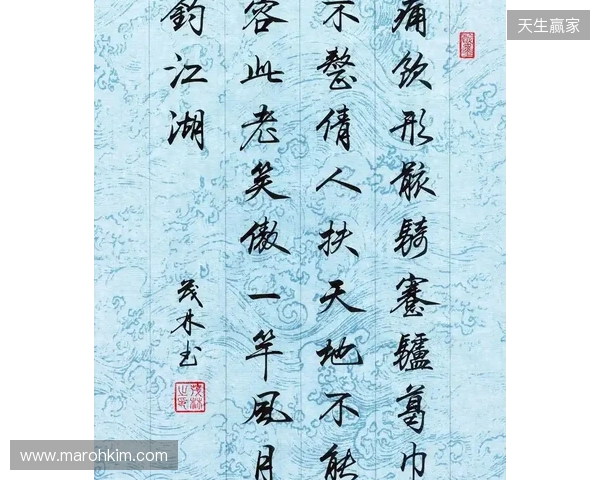 天生赢家
痛飲形骸騎蹇驢葛巾
不整倩人扶天地不能
容此老笑傲一竿風月
釣江湖
茂林书
www.marohkim.com